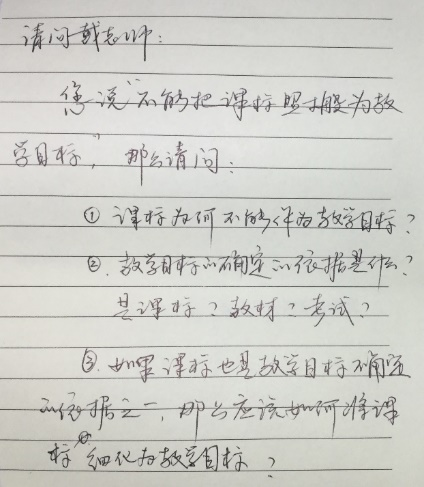 请问戴老师:
您说"不能把课标照搬为教
学目标,"那么请问:
① 课标为何不能作为教学目标?
②. 教学目标的确定的依据是什么?
是课标?教材?考试?
③. 如果课标也是教学目标确定
的依据之一,那么应该如何将课
标 细化为教学目标?